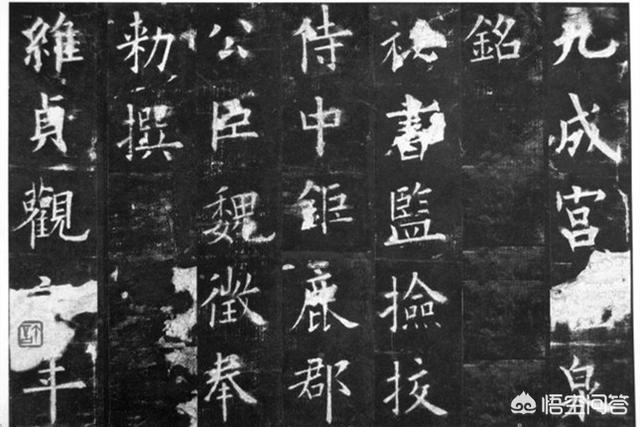 九成宮泉
銘
祕書監撿挍
侍中鉅鹿郡
公臣魏徵奉
勑撰
維貞觀年
悟空问答